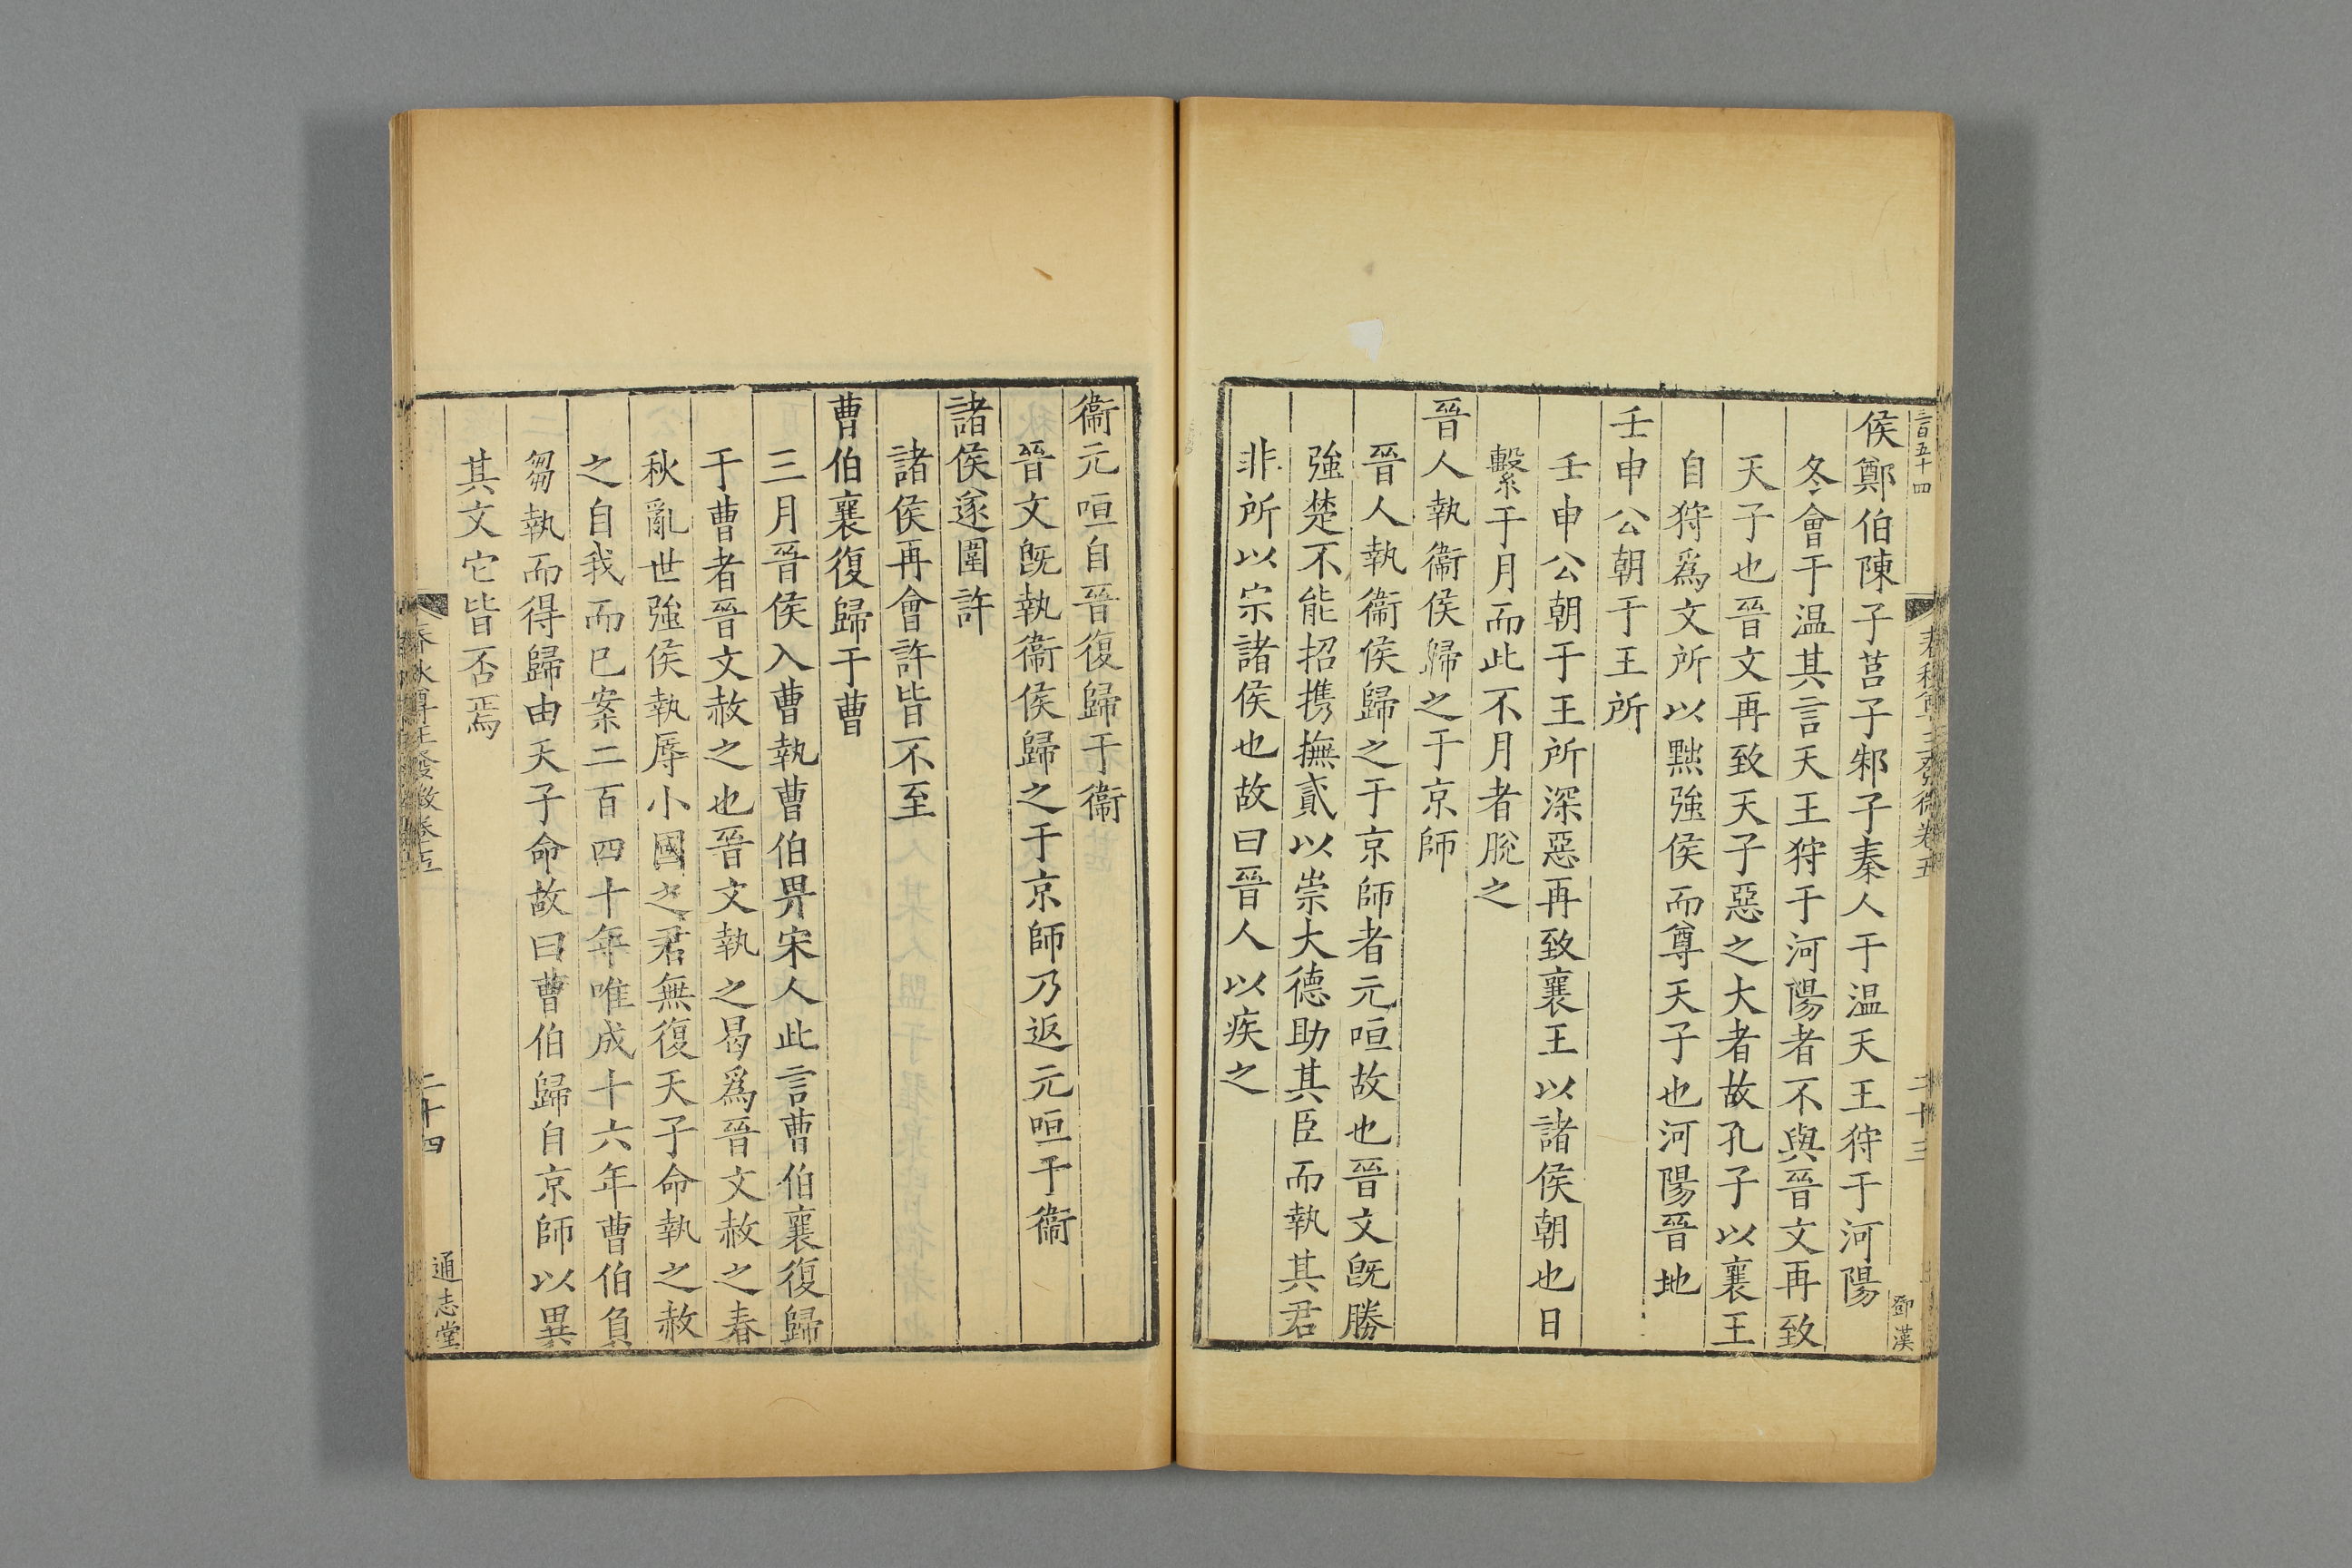 三百五十四
春秋尊王發微卷五
二十三
鄧漢
侯鄭伯陳子莒子邾子秦人于温天王狩于河陽
冬會于温其言天王狩于河陽者不與晉文再致
天子也晉文再致天子惡之大者故孔子以襄王
自狩爲文所以黜強侯而尊天子也河陽晉地
壬申公朝于王所
壬申公朝于王所深惡再致襄王以諸侯朝也日
繫于月而此不月者脫之
晉人執衞侯歸之于京師
晉人執衞侯歸之于京師者元咺故也晉文旣勝
強楚不能招攜撫貳以崇大德助其臣而執其君
非所以宗諸侯也故曰晉人以疾之
衞元咺自晉復歸于衞
晉文旣執衞侯歸之于京師乃返元咺于衞
諸侯遂圍許
諸侯再會許皆不至
曹伯襄復歸于曹
三月晉侯入曹執曹伯畀宋人此言曹伯襄復歸
于曹者晉文赦之也晉文執之曷爲晉文赦之春
秋亂世強侯執辱小國之君無復天子命執之赦
之自我而已案二百四十年唯成十六年曹伯負
芻執而得歸由天子命故曰曹伯歸自京師以異
其文它皆否焉
春秋尊王發微卷五
二十四
通志堂